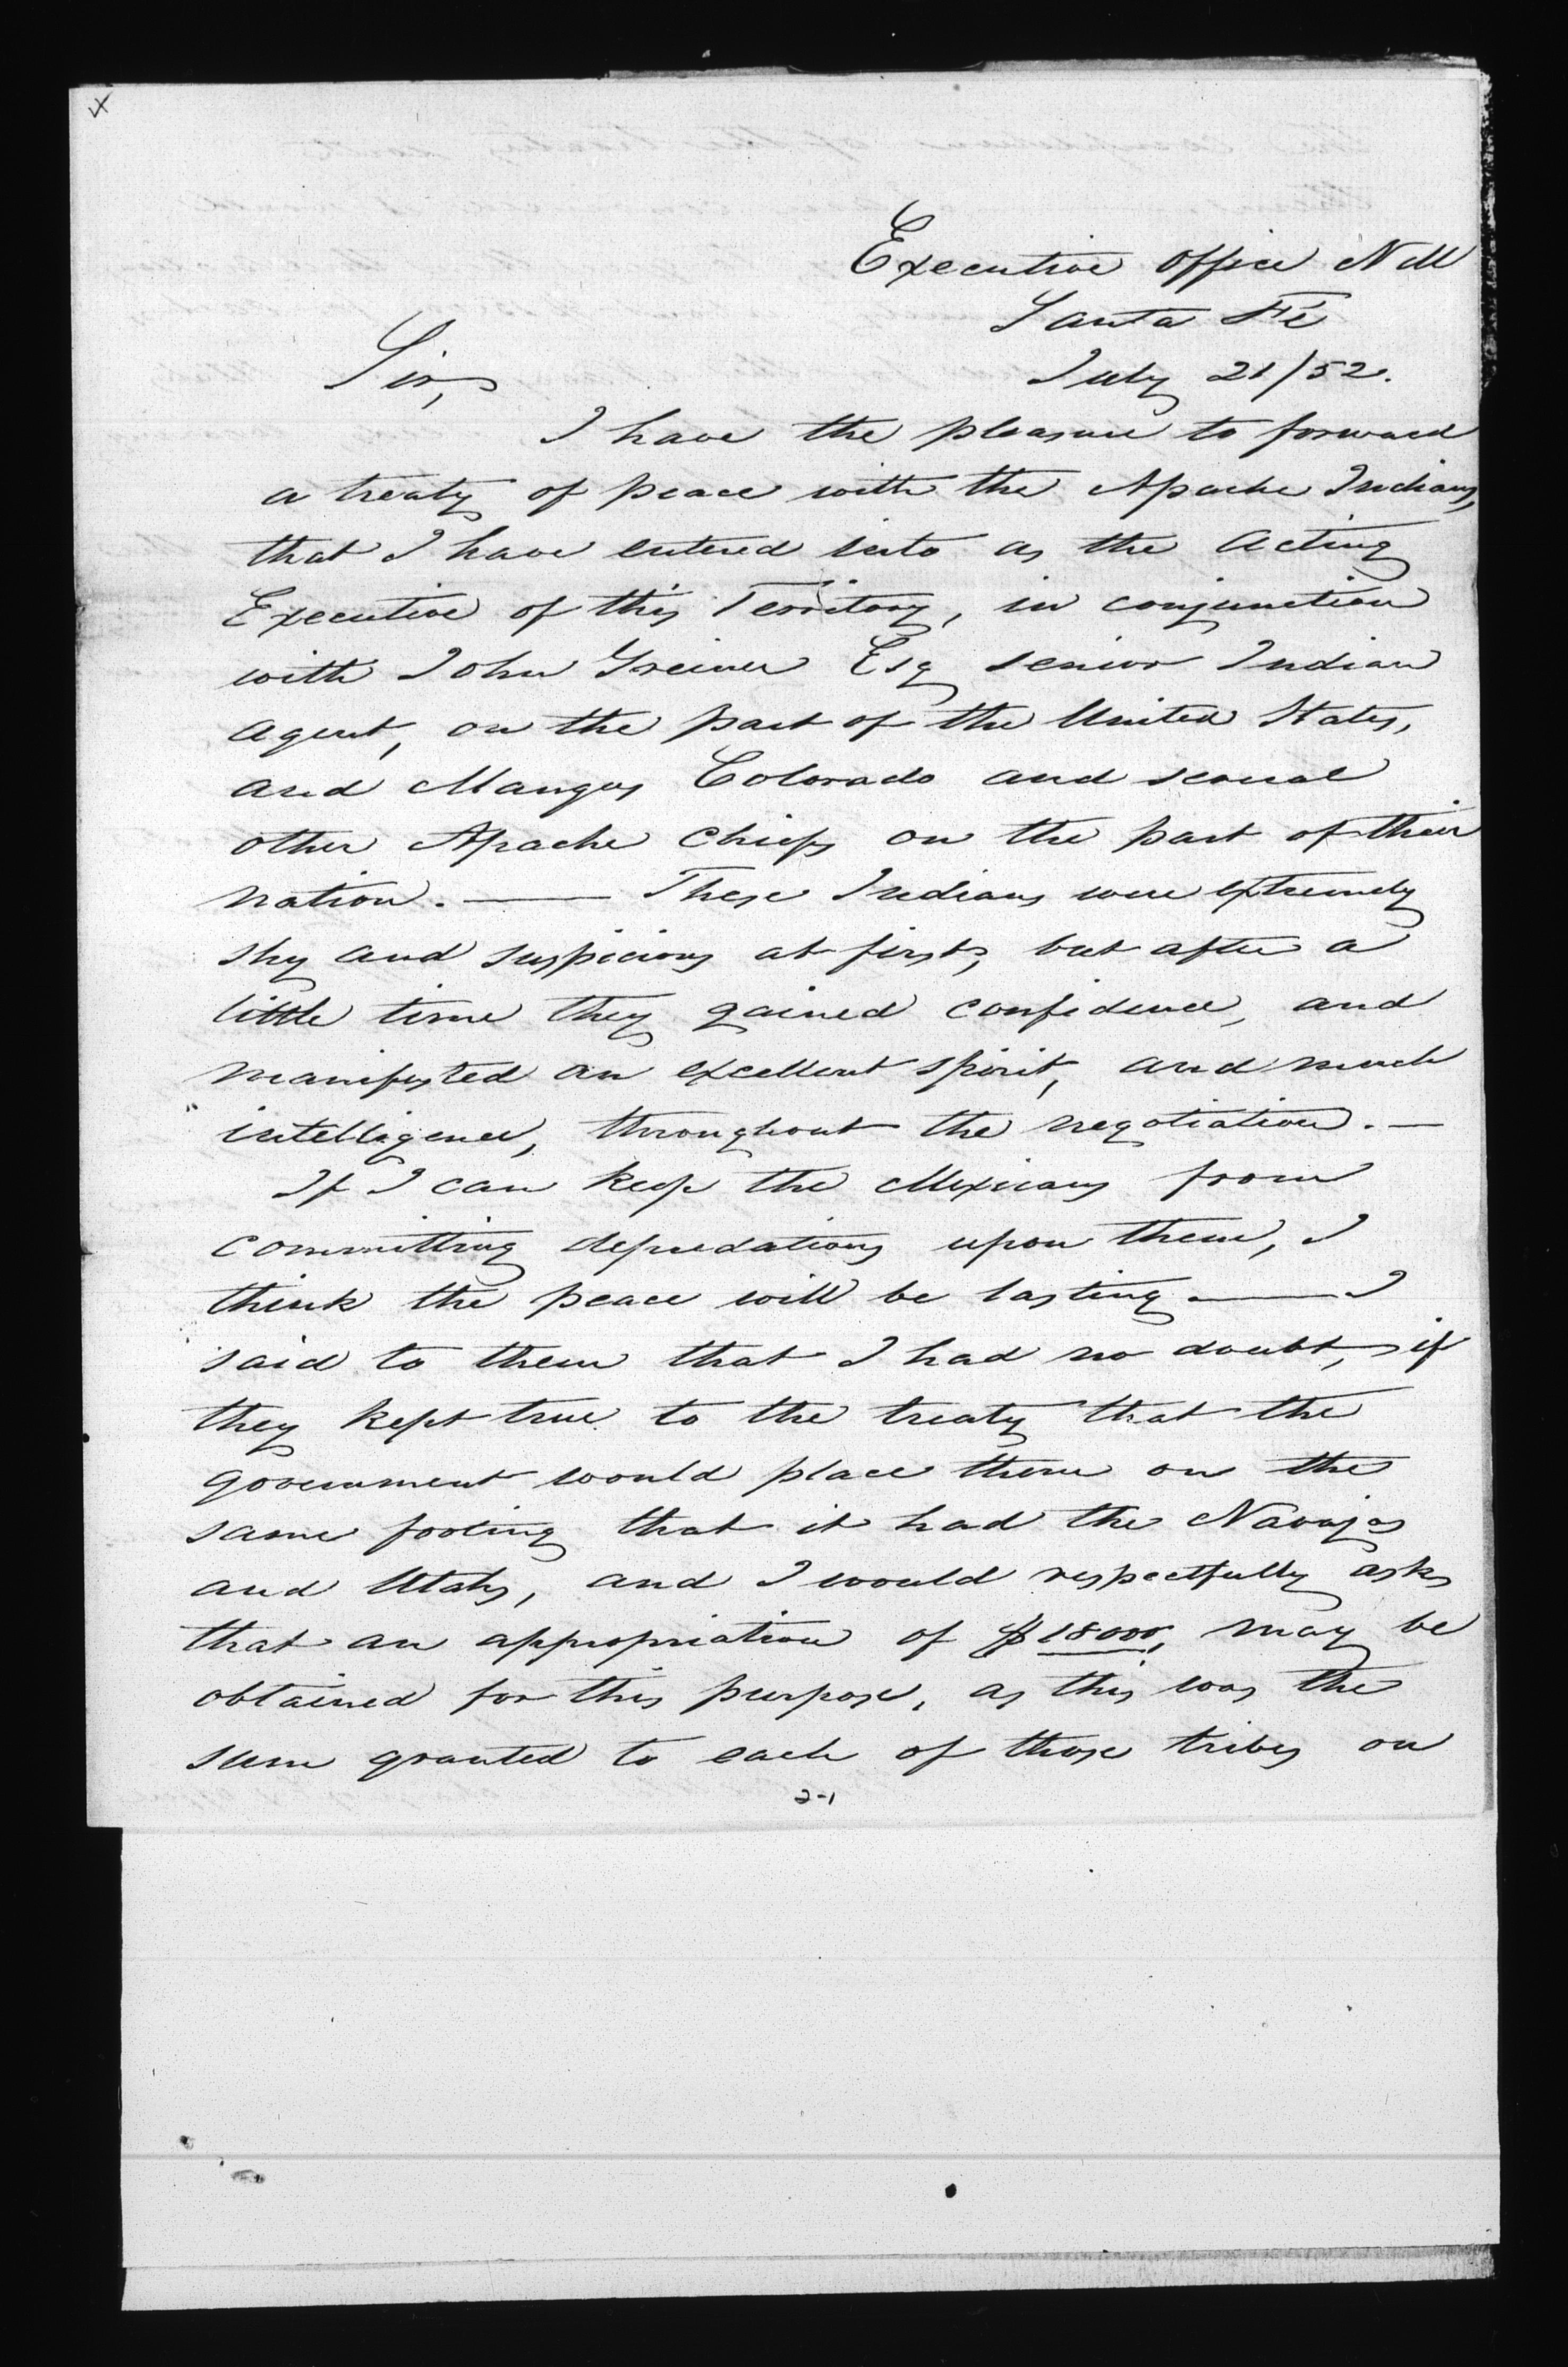 Executive Office N M
Santa Fé
Sir, July 21/52.
I have the pleasure to forward
a treaty of peace with the Apache Indians,
that I have entered into as the Acting
Executive of this Territory, in conjunction
with John Greiner Esq senior Indian
agent, on the part of the United States,
and Mangus Colorado and several
other Apache Chiefs on the part of their
nation. — These Indians were extremely
shy and suspicious at first, but after a
little time they gained confidence, and
manifested an excellent spirit, and much
intelligence, throughout the negotiation. —
If I can keep the Mexicans from
committing depredations upon them, I
think the peace will be lasting — I
said to them that I had no doubt, if
they kept true to the treaty that the
government would place them on the
same footing that it had the Navajos
and Utahs, and I would respectfully ask
that an appropriation of $18000, may be
obtained for this purpose, as this was the
sum granted to each of those tribes on
2-1